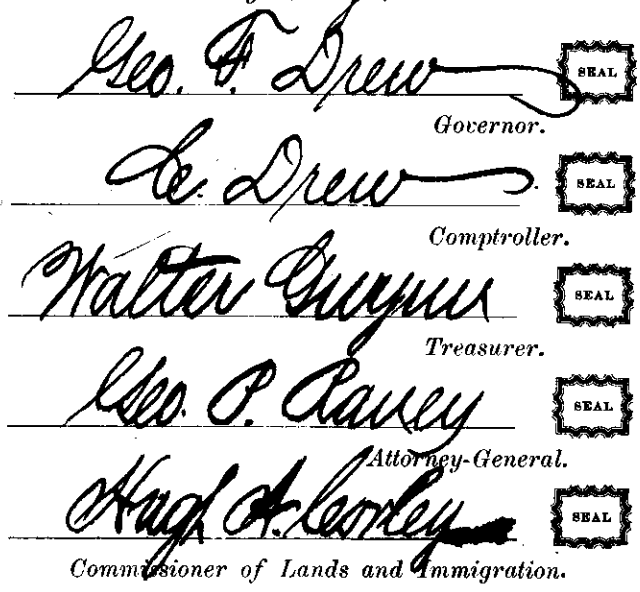 Geo. F. Drew SEAL
Governor.
C. Drew SEAL
Comptroller.
Walter Gwynn SEAL
Treasurer.
Geo. P. Raney SEAL
Attorney-General.
Hugh A. Corley SEAL
Commissioner of Lands and Immigration.